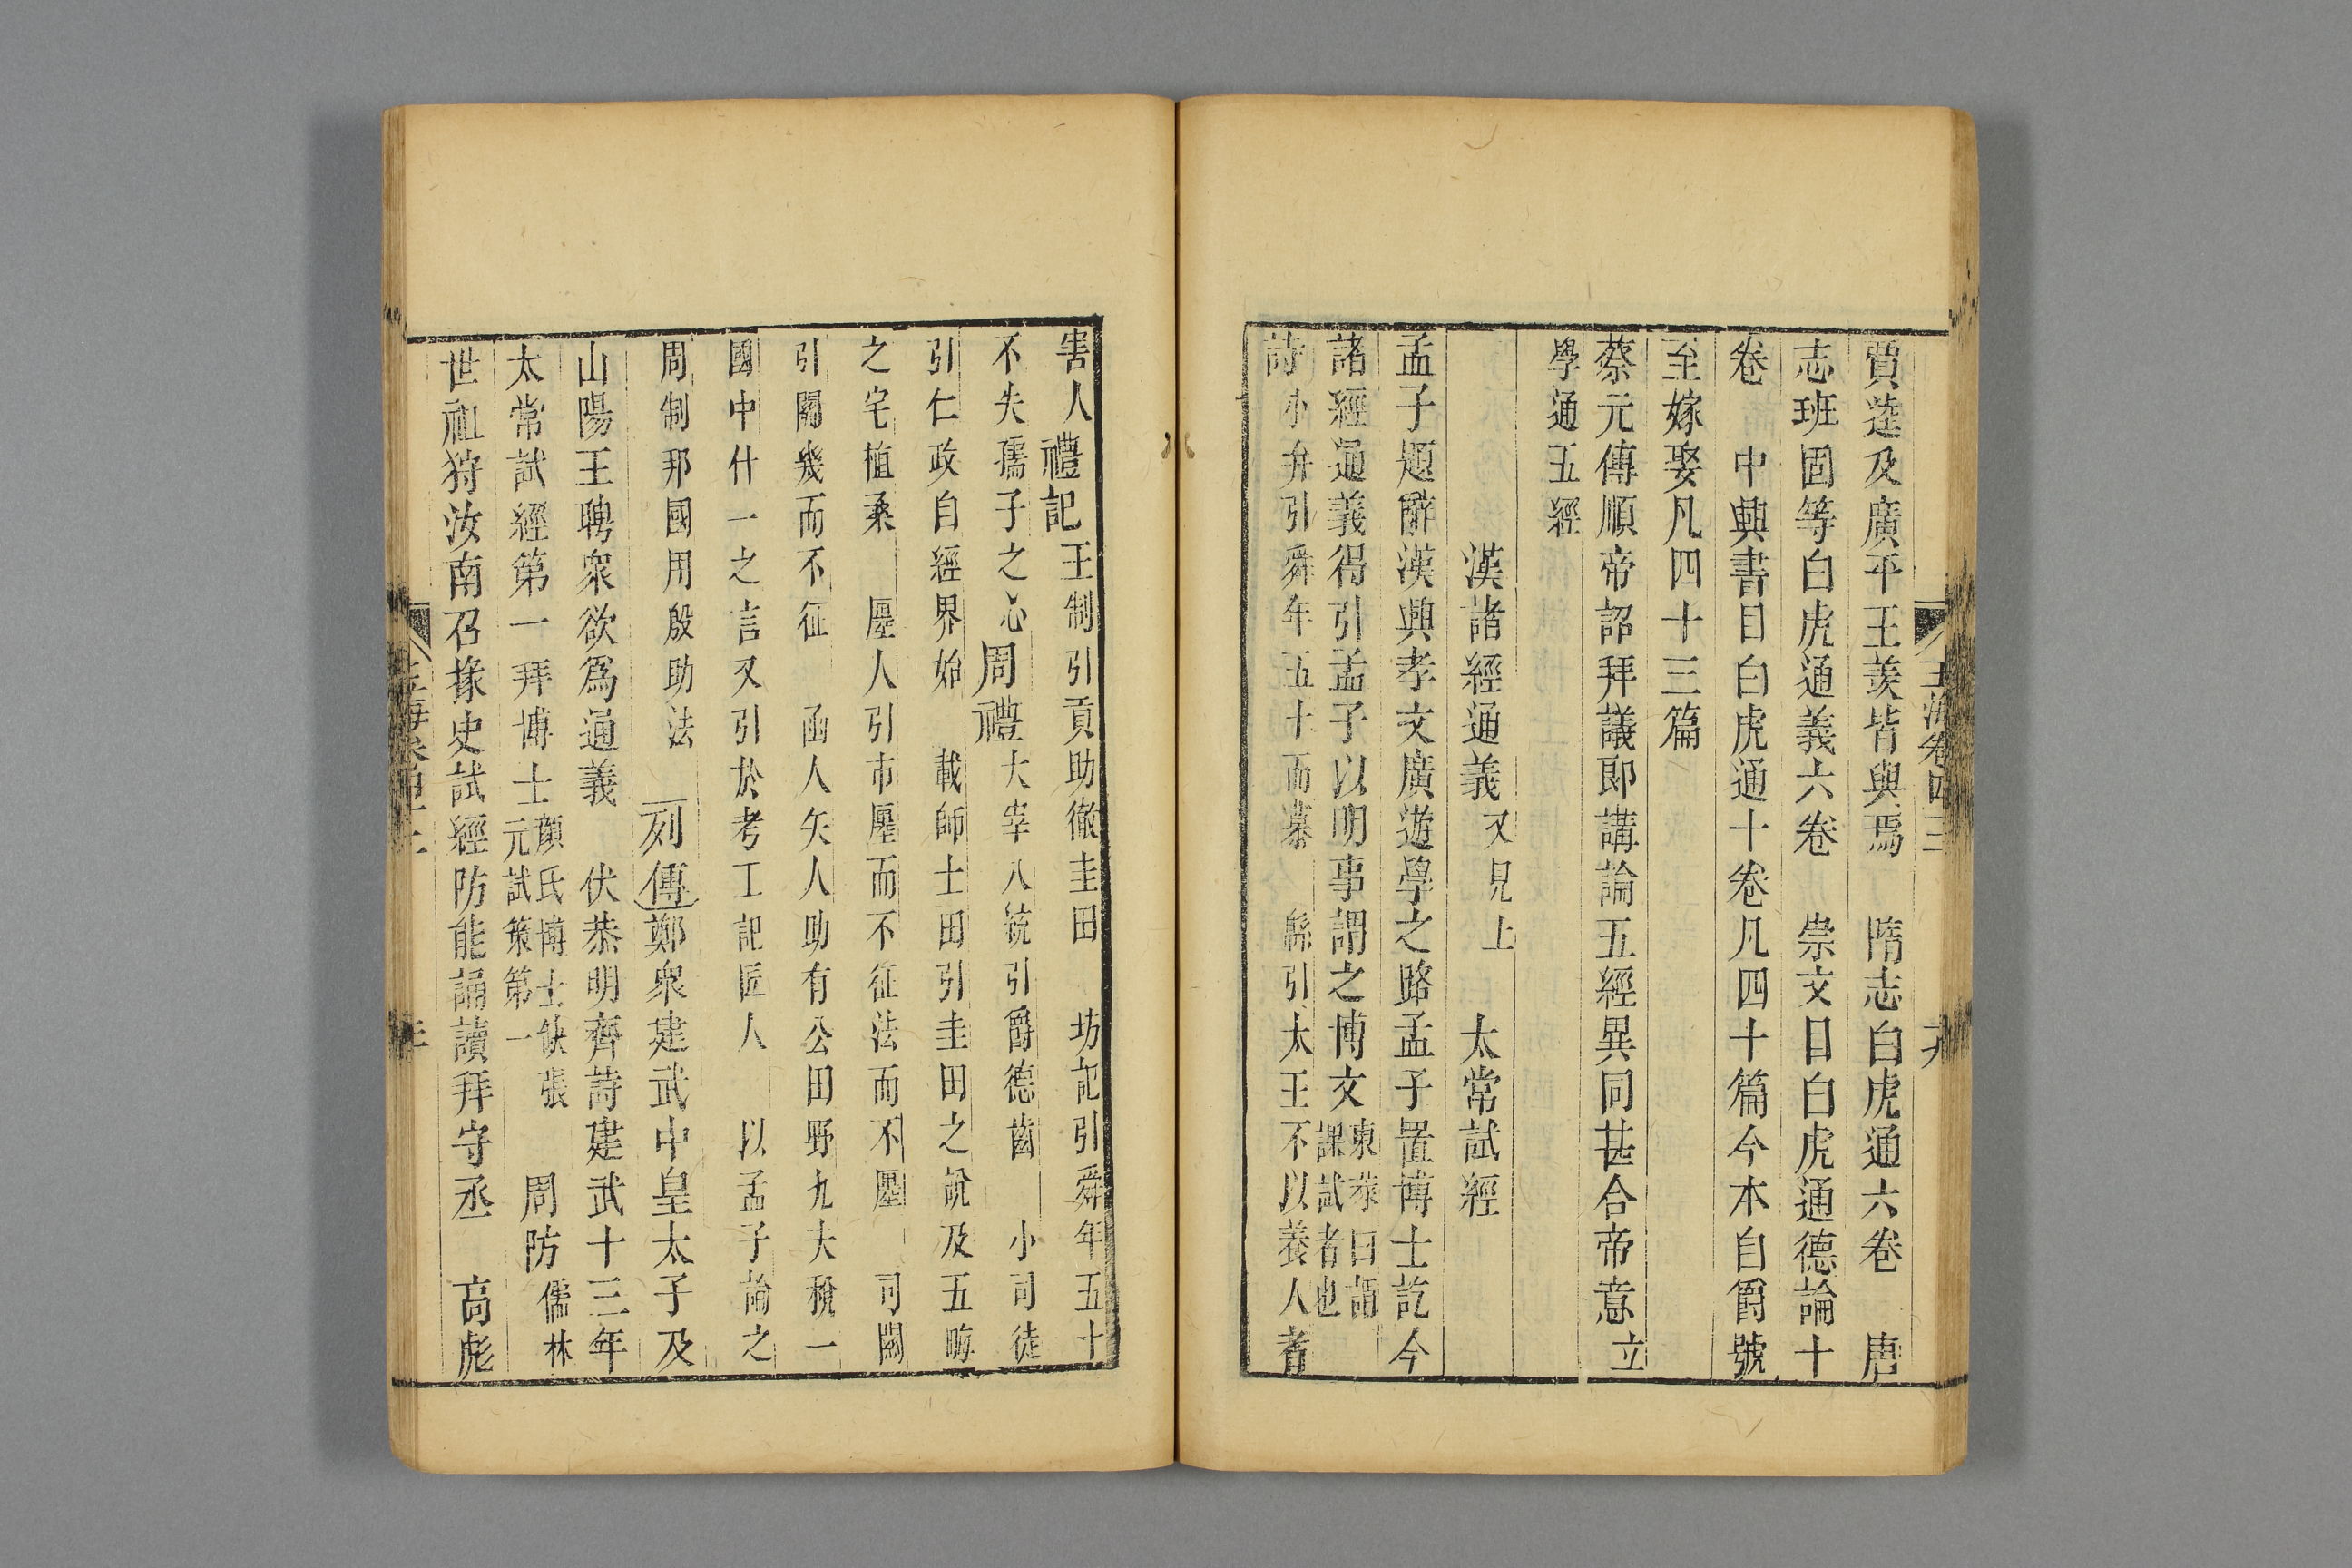 玉海卷四三
賈逵及廣平王羨皆與焉　隋志白虎通六卷　唐
志班固等白虎通義六卷　崇文目白虎通德論十
卷　中興書目白虎通十卷凡四十篇今本自爵號
至嫁娶凡四十三篇
蔡元傳順帝詔拜議郎講論五經異同甚合帝意立
學通五經
漢諸經通義又見上　太常試經
孟子題辭漢興孝文廣遊學之路孟子置博士訖今
諸經通義得引孟子以明事謂之博文東萊曰謂
課試者也
詩小弁引舜年五十而慕　緜引太王不以養人者
害人禮記王制引貢助徹圭田　坊記引舜年五十
不失孺子之心周禮大宰八統引爵德齒　小司徒
引仁政自經界始　載師士田引圭田之說及五畮
之宅植桑　廛人引市廛而不征法而不廛　司關
引關幾而不征　函人矢人助有公田野九夫稅一
國中什一之言又引於考工記匠人　以孟子論之
周制邦國用殷助法　列傳鄭衆建武中皇太子及
山陽王聘衆欲爲通義　伏恭明齊詩建武十三年
太常試經第一拜博士顏氏博士缺張
元試策第一　周防儒林
世祖狩汝南召掾史試經防能誦讀拜守丞　高彪